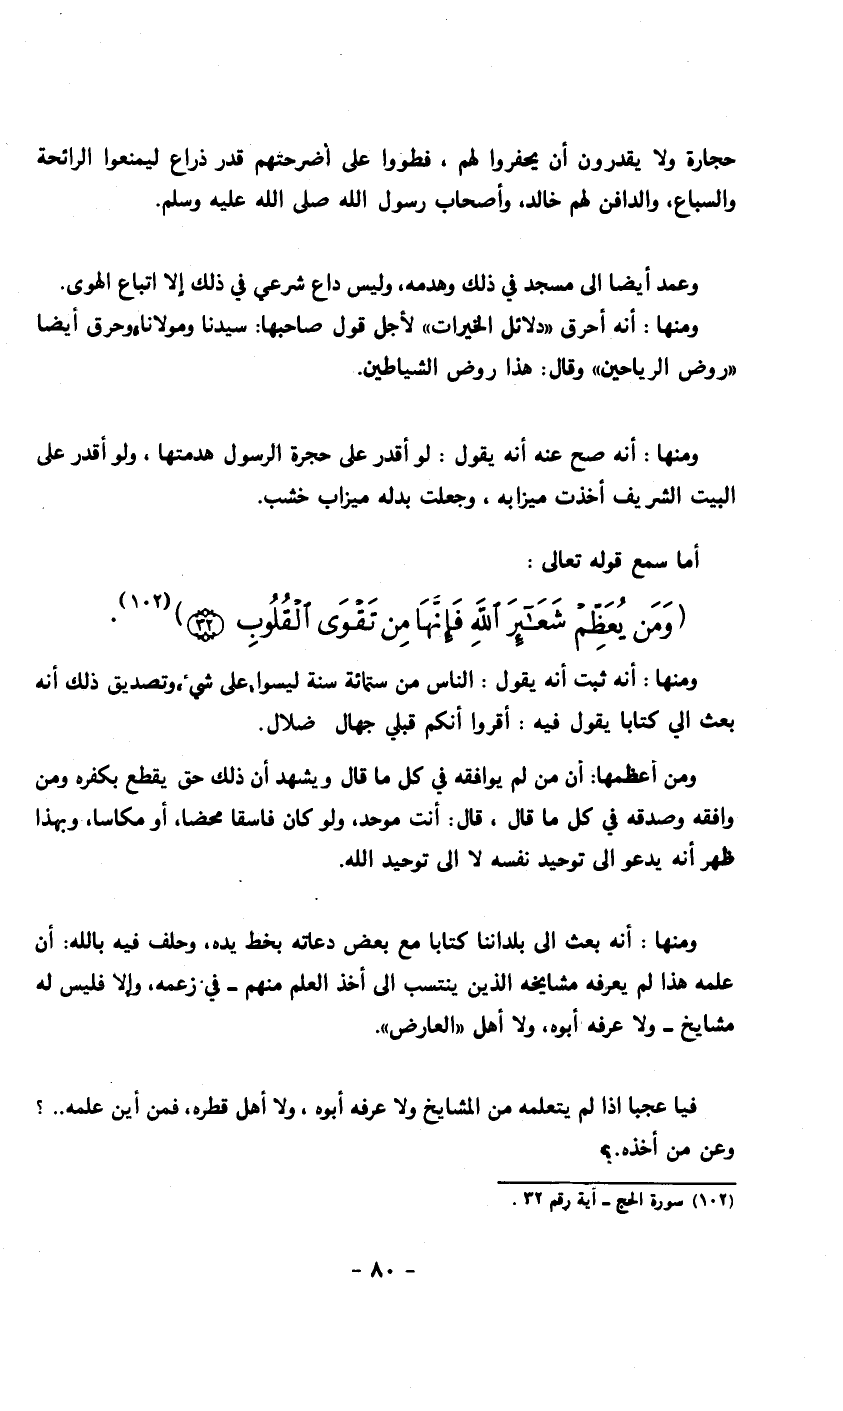 حجارة ولا يقدرون أن يحفروا لهم ، فطووا على أضرحتهم قدر ذراع ليمنعوا الرائحة
والسباع، والدافن لهم خالد، وأصحاب رسول الله صلى الله عليه وسلم.
وعمد أيضا الى مسجد في ذلك وهدمه، وليس داع شرعي في ذلك إلا اتباع الهوى.
ومنها : أنه أحرق «دلائل الخيرات» لأجل قول صاحبها: سيدنا ومولانا، وحرق أيضا
«روض الرياحين» وقال: هذا روض الشياطين.
ومنها : أنه صح عنه أنه يقول : لو أقدر على حجرة الرسول هدمتها ، ولو أقدر على
البيت الشريف أخذت ميزابه ، وجعلت بدله ميزاب خشب.
أما سمع قوله تعالى :
(وَمَن يُعَظِّمْ شَعَٰٓئِرَ ٱللَّهِ فَإِنَّهَا مِن تَقْوَى ٱلْقُلُوبِ ٣٢)(١٠٢).
ومنها : أنه ثبت أنه يقول : الناس من ستمائة سنة ليسوا على شيء، وتصديق ذلك أنه
بعث الي كتابا يقول فيه : أقروا أنكم قبلي جهال ضلال.
ومن أعظمها: أن من لم يوافقه في كل ما قال ويشهد أن ذلك حق يقطع بكفره ومن
وافقه وصدقه في كل ما قال ، قال: أنت موحد، ولو كان فاسقا محضا، أو مكاسا، وبهذا
ظهر أنه يدعو الى توحيد نفسه لا الى توحيد الله.
ومنها : أنه بعث الى بلداننا كتابا مع بعض دعاته بخط يده، وحلف فيه بالله: أن
علمه هذا لم يعرفه مشايخه الذين ينتسب الى أخذ العلم منهم ـ في زعمه، وإلا فليس له
مشايخ ـ ولا عرفه أبوه، ولا أهل «العارض».
فيا عجبا اذا لم يتعلمه من المشايخ ولا عرفه أبوه ، ولا أهل قطره، فمن أين علمه.. ؟
وعن من أخذه.؟
(١٠٢) سورة الحج ـ أية رقم ٣٢ .
- ٨٠ -